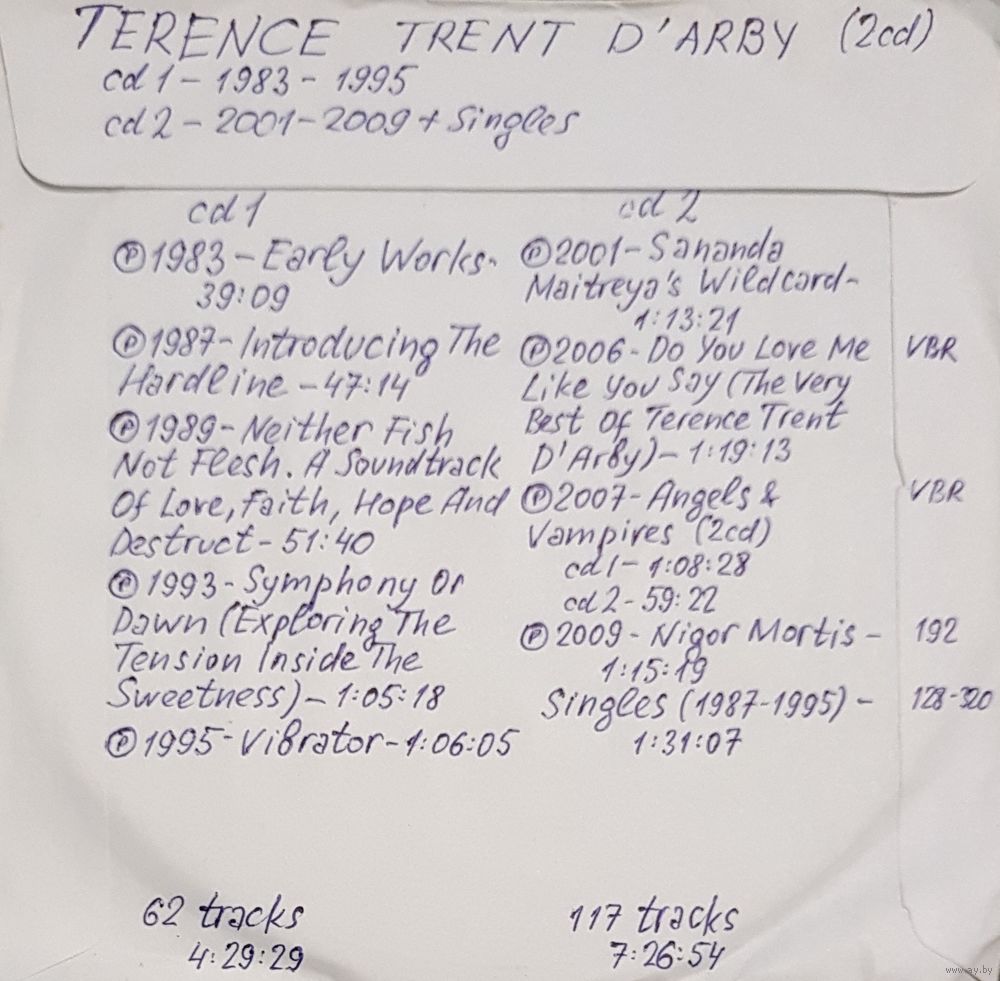 TERENCE TRENT D'ARBY (2cd)
cd 1 – 1983 – 1995
cd 2 – 2001 – 2009 + Singles
cd 1
Ⓟ1983 – Early Works –
39:09
Ⓟ1987 – Introducing The
Hardline – 47:14
Ⓟ1989 – Neither Fish
Not Flesh. A Soundtrack
Of Love, Faith, Hope And
Destruct – 51:40
Ⓟ1993 – Symphony Or
Dawn (Exploring The
Tension Inside The
Sweetness) – 1:05:18
Ⓟ1995 – Vibrator – 1:06:05
62 tracks
4:29:29
cd 2
Ⓟ2001 – Sananda
Maitreya's Wildcard –
1:13:21
Ⓟ2006 – Do You Love Me VBR
Like You Say (The Very
Best Of Terence Trent
D'Arby) – 1:19:13
Ⓟ2007 – Angels & VBR
Vampires (2cd)
cd 1 – 1:08:28
cd 2 – 59:22
Ⓟ2009 – Nigor Mortis – 192
1:15:19
Singles (1987-1995) – 128-320
1:31:07
117 tracks
7:26:54
www.ay.by